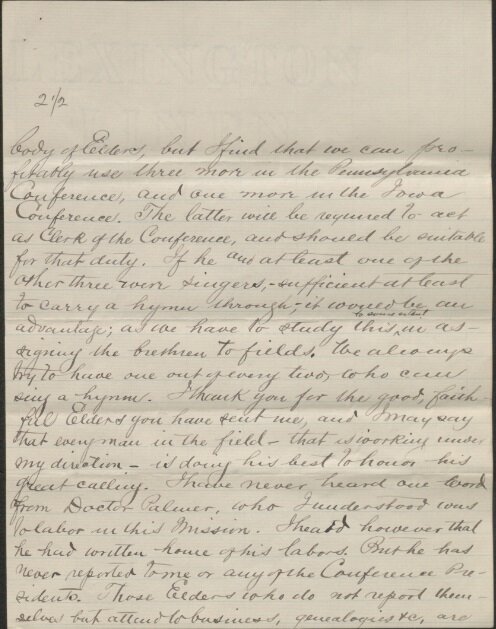 2 1/2
body of Elders, but I find that we can pro-
fitably use three more in the Pennsylvania
Conference, and one more in the Iowa
Conference. The latter will be required to act
as Clerk of the Conference, and should be suitable
for that duty. If he and at least one of the
other three were singers, - sufficient at least
to carry a hymn through, - it would be an
advantage; as we have to study this, to some extent in as-
signing the brethren to fields. We always
try to have one out of every two, who can
sing a hymn. I thank you for the good, faith-
ful Elders you have sent me, and I may say
that every man in the field - that is working under
my direction - is doing his best to honor his
great calling. I have never heard one word
from Doctor Palmer, who I understood was
to labor in this Mission. I heard however that
he had written home of his labors. But he has
never reported to me or any of the Conference Pre-
sidents. Those Elders who do not report them-
selves but attend to business, genealogies &c, are